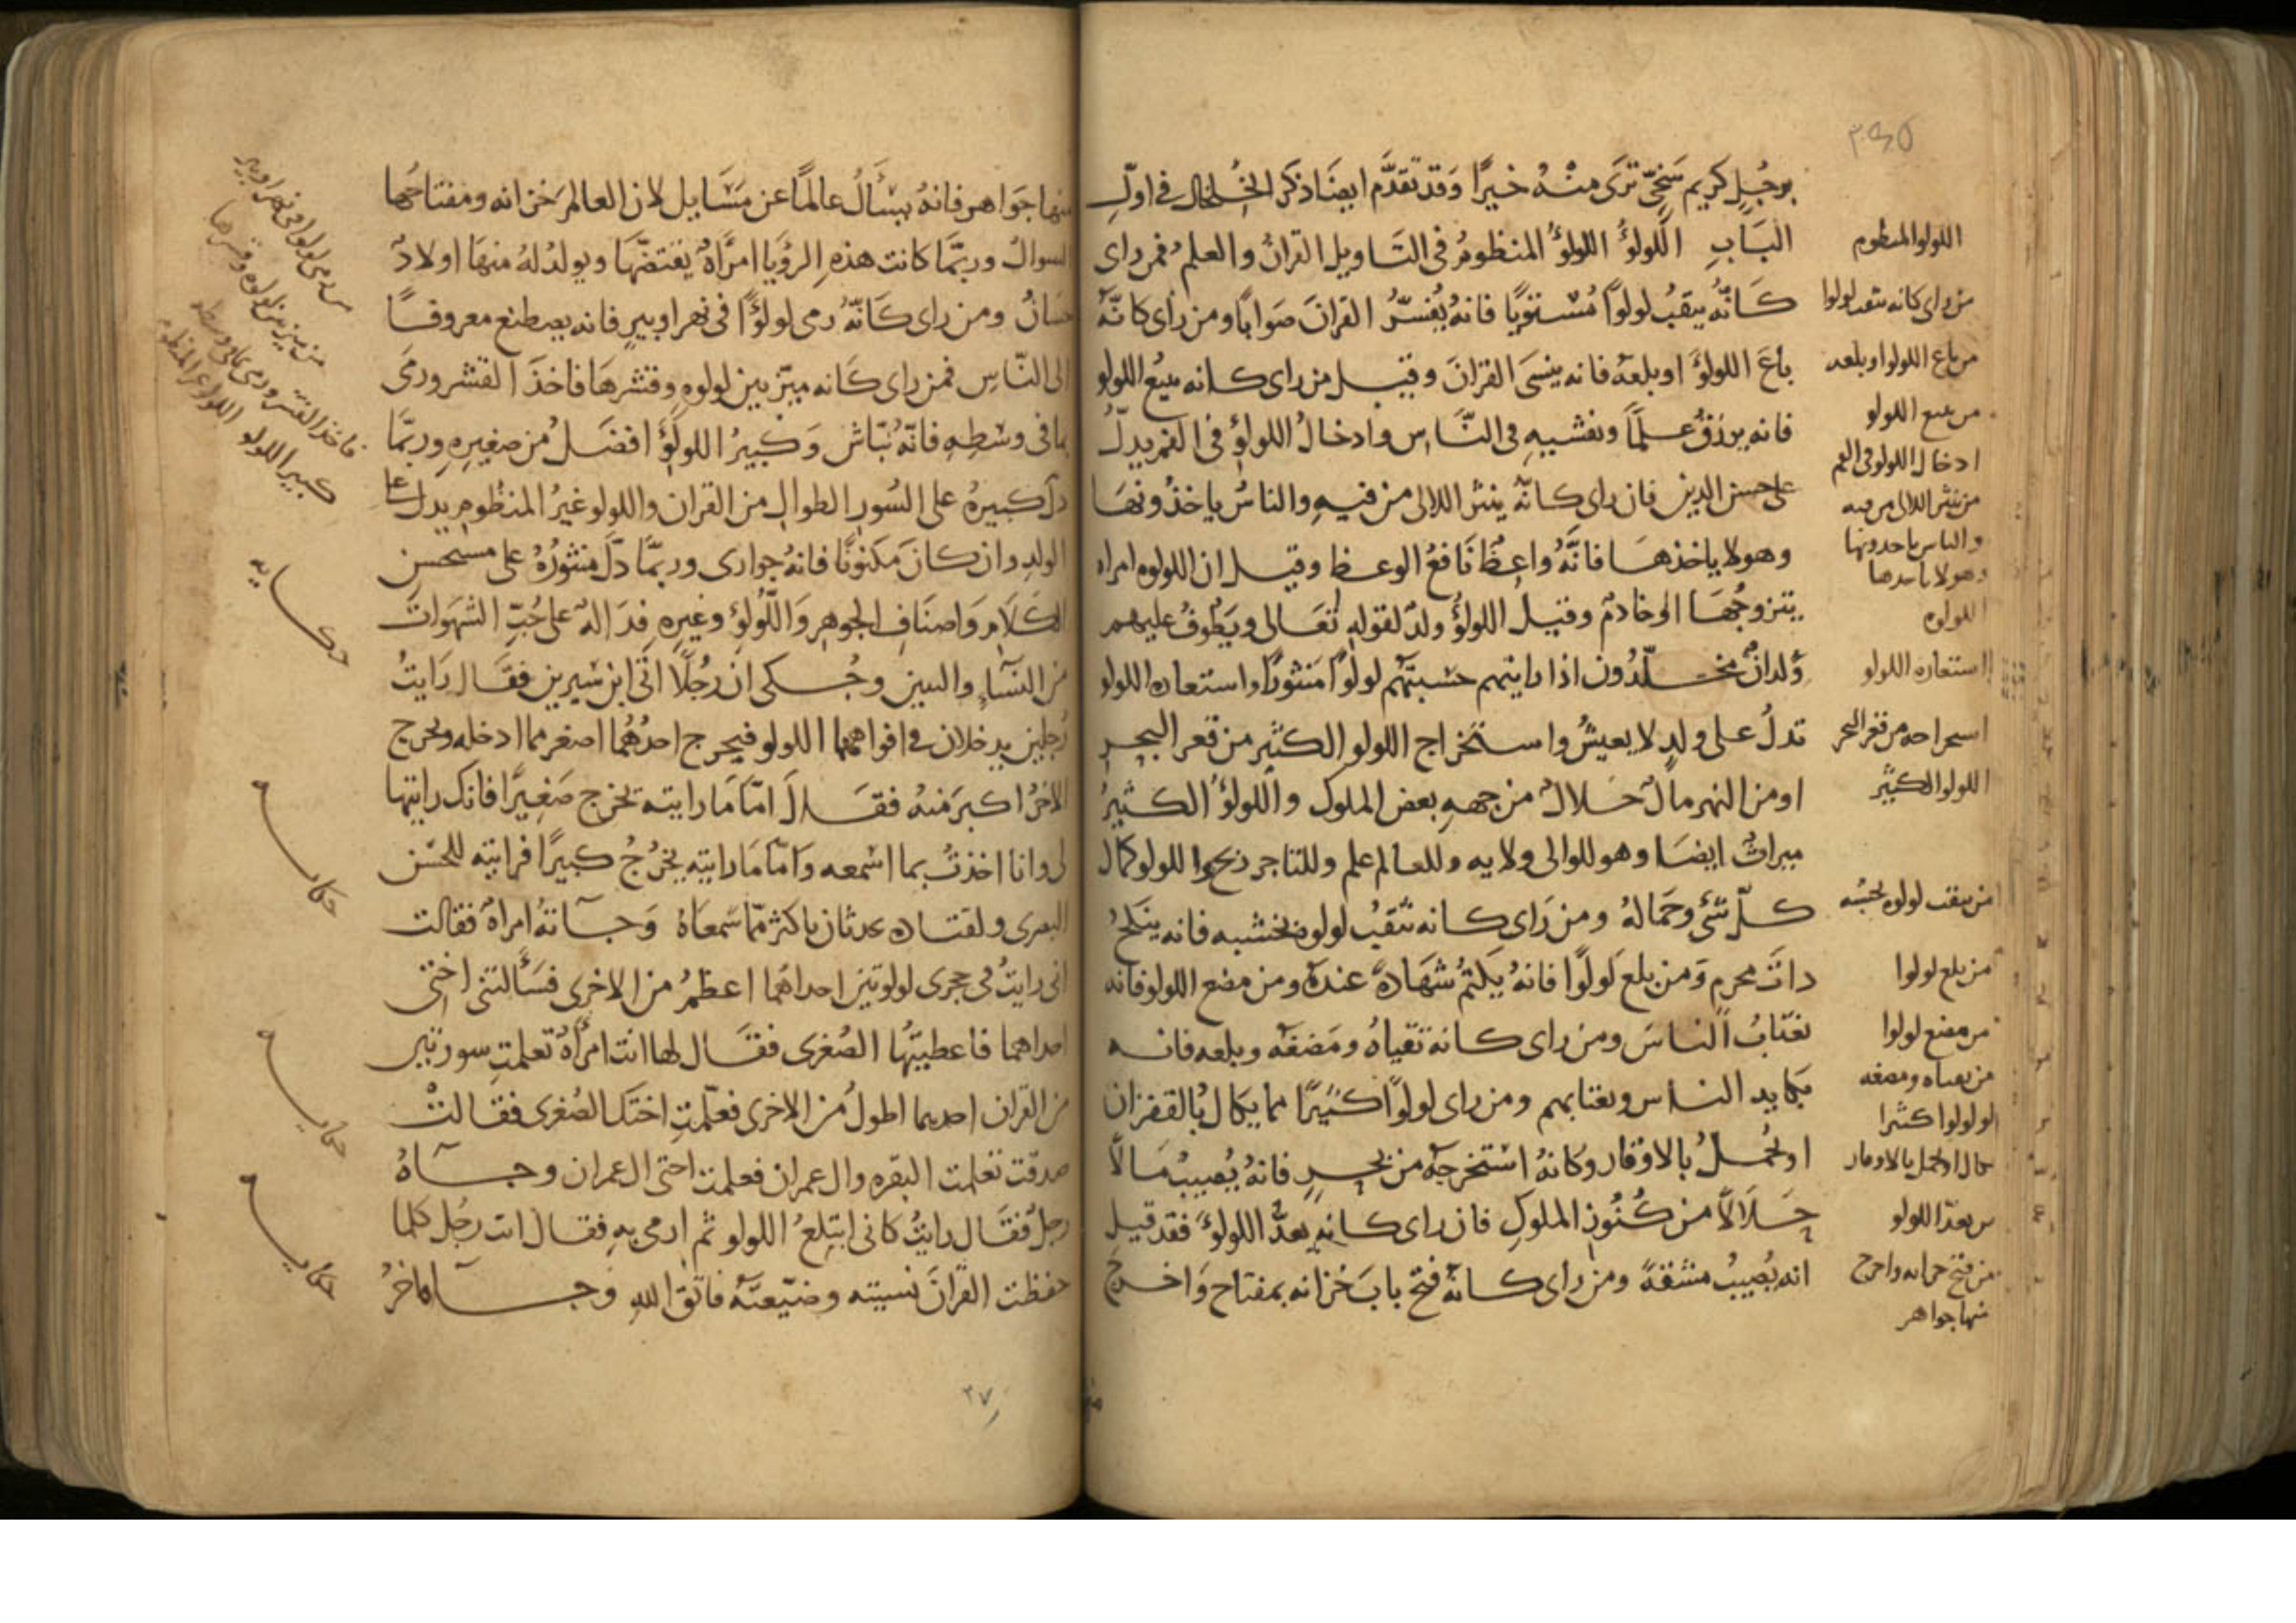 برجُلٍ كريم سَخيّ ترَى منْهُ خيرًا وَقد تَقدَّم ايضًا ذكر الخُلخال في اوّلِ
البَابِ اللُّولوُ اللولوُ المنظومُ في التَاويل القرانُ والعلم فمن راى
كَانَّهُ يثقبُ لولوًا مُسْتويًا فانهُ يُفسّرُ القرانَ صَوابًا ومن راى كانَّهُ
باعَ اللولوَ او بلعهُ فانه ينسَى القرانَ وقيل من راى كانه يبيع اللولو
فانه يرزقُ علمًا ويفشيهِ في النَّاس وادخالُ اللولو في الفم يدلُّ
على حسن الدين فان راى كانّهُ ينثر اللالى من فيهِ والناسُ ياخذونهَا
وهو لا ياخذهَا فانَّهُ واعظٌ نَافعُ الوعظ وقيل ان اللولوه امراه
يتزوجُهَا او خادمٌ وقيل اللولوُ ولدٌ لقوله تعَالى ويَطُوفُ عليهم
وِلدانٌ مخلّدُون اذا رايتهم حسبتَهُم لولوًا مَنثورًا واستعاره اللولو
تدلُ على ولدٍ لا يعيشُ واستخراج اللولو الكثير من قعر البحر
او من النهر مالٌ حلالٌ من جههِ بعض الملوك واللولوُ الكثيرُ
ميراثٌ ايضا وهو للوالى ولايه وللعالم علم وللتاجر ربح واللولو كمال
كلّ شئ وجَمالهُ ومن رَاى كانه ثقبُ لولوه بخشبه فانه ينكحُ
ذاتَ محرمٍ وَمن بلعَ لولوًا فانهُ يَكتمُ شهَادهً عندهُ ومن مضع اللولو فانه
يغتابُ الناسَ ومن راى كانه تقياهُ ومَضغَهُ وبلعه فانه
يكايد الناس ويغتابهم ومن راى لولوًا كثيرًا مما يكالُ بالقفزان
او يُحملُ بالاوقار وكانهُ استخرجهُ من بحرٍ فانهُ يُصيبُ مَالاً
حلالاً من كُنُوزِ الملوكِ فان راى كانه يعدُّ اللولوَ فقد قيل
انه يُصيبُ مشقةً ومن راى كانهُ فتح بابَ خزانه بمفتاح وَاخرج
اللولو المنظوم
من راى كانه يثقب لولوا
من باع اللولو او بلعه
من يبيع اللولو
ادخال اللولو في الفم
من نثر اللالى من فيه
والناس ياخدونها
وهو لا ياخدها
اللولوه
استعاره اللولو
استخراجه من قعر البحر
اللولو الكثير
من يثقب لولوه بخشبه
من بلع لولوا
من مضع لولوا
من تقياه ومضغه
لولوا كثيرا
يكال او يحمل بالاوقار
من يعدّ اللولو
من فتح خزانه واخرج
منها جواهر
منها جوَاهر فانهُ يسْألُ عالمًا عن مَسَايل لان العالمَ خزانه ومفتاحُها
السوالُ وربّمَا كانت هذهِ الرؤيَا امرَأهً يفتضّهَا ويولدُ لهُ منهَا اولادٌ
حسَانٌ ومن راى كَانّهُ رمى لولوًا في نهر او بيرٍ فانه يصطنع معروفًا
الى النّاسِ فمن راى كانه ميّز بين لولوهٍ وقشرهَا فاخذَ القشر ورمَى
بما في وسَطِهِ فانّهُ نبّاش وَكبيرُ اللولوِ افضلُ من صغيرِهِ وربمَّا
دلّ كبيرهُ على السُّورِ الطوالِ من القران واللولو غيرُ المنظُوم يدل على
الولد وان كانَ مَكنونًا فانهُ جوارى وربمّا دلَّ منثورُهُ على مستحسن
الكلَام وَاصنَافِ الجوهر وَاللُّولوِ وغيره فدَالهٌ على حُبِّ الشهَوات
من النسَاءِ والبنين وحُكى ان رجُلًا اتى ابن سيرين فقال رَايتُ
رجلين يدخلان في افواههمَا اللولو فيخرج احدُهُما اصغر مما ادخله ويخرج
الاخرُ اكبرَ منهُ فقالَ امّا مَا رايته يخرج صَغيرًا فانك رايتها
لي وانا اخذتُ بما اسمعه وَامّا مَا رايته يخرُجُ كبيرًا فرايته للحسن
البصرى ولقتاده يحدثان باكثر ممّا سمعَاهُ وَجاتهُ امراهٌ فقالت
انى رايتُ في حجرى لولوتين احداهُما اعظمُ من الاخرى فسَألتنى اختى
احداهما فاعطيتُها الصُغرى فقَال لها انت امرأهٌ تعلمتِ سورتين
من القران احديهما اطولُ من الاخرى فعلّمتِ اختَك الصُغرى فقالتْ
صدقت تعلمت البقره وال عمران فعلمت اختى ال عمران وجَآهُ
رجلٌ فقَال رايتُ كانى ابتلعُ اللولو ثم ارمى به فقال انت رجُل كلما
حفظت القرانَ نسيته وضيّعتَهُ فاتق الله وجآ اخرُ
من رمى لولوا في نهر او بير
من ميز بين لولوه وقشرها
فاخذ القشر ورمى بما في وسطه
كبير اللولو
اللولو غير المنظوم
حكايه
حكايه
حكايه
حكايه
٢٧